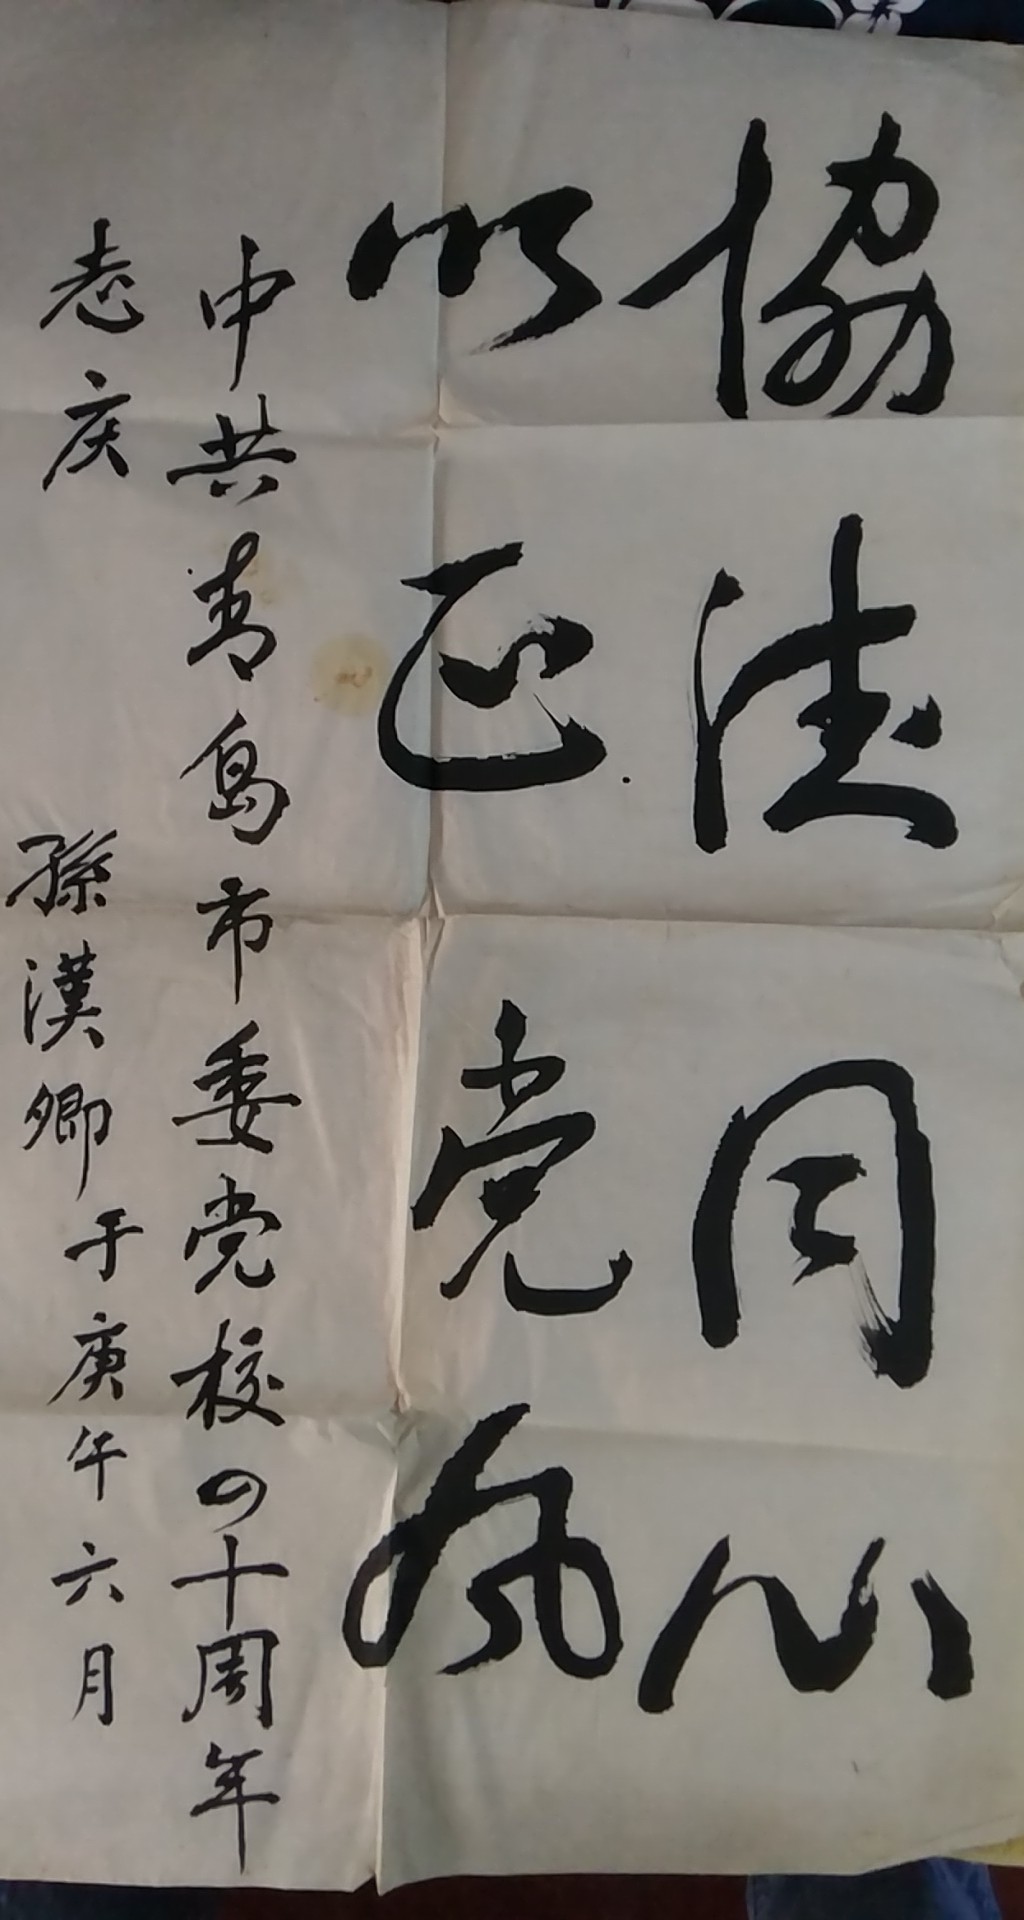 協德同心
以正党风
中共青岛市委党校四十周年
志庆
孫漢卿于庚午六月